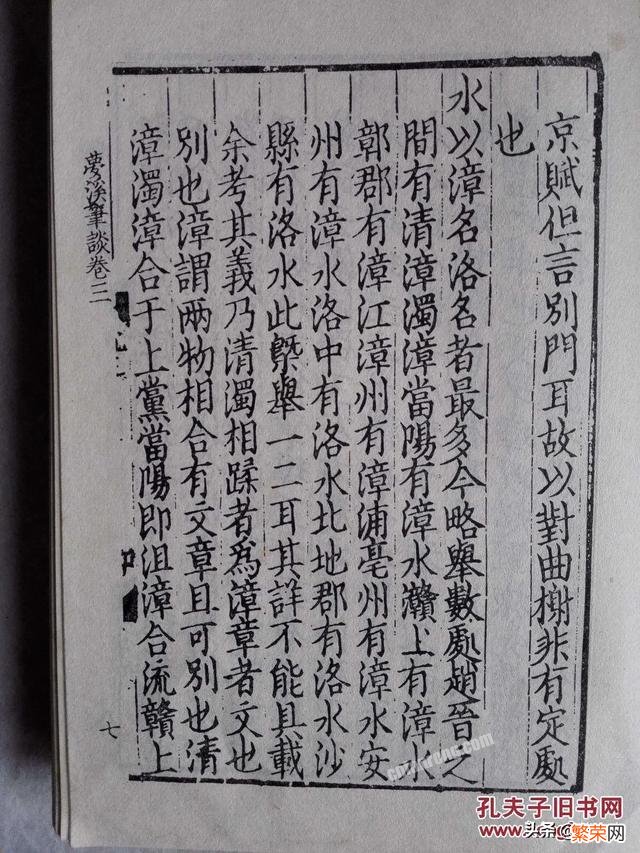 京賦但言別門耳故以對曲榭非有定處
也
水以漳名洛名者最多今略舉數處趙晉之
間有清漳濁漳當陽有漳水灨上有漳水
鄣郡有漳江漳州有漳浦亳州有漳水安
州有漳水洛中有洛水北地郡有洛水沙
縣有洛水此槩舉一二耳其詳不能具載
余考其義乃清濁相蹂者為漳章者文也
別也漳謂兩物相合有文章且可別也清
漳濁漳合于上黨當陽即沮漳合流贛上
夢溪筆談卷三
七
孔夫子旧书网
头条@繁荣网